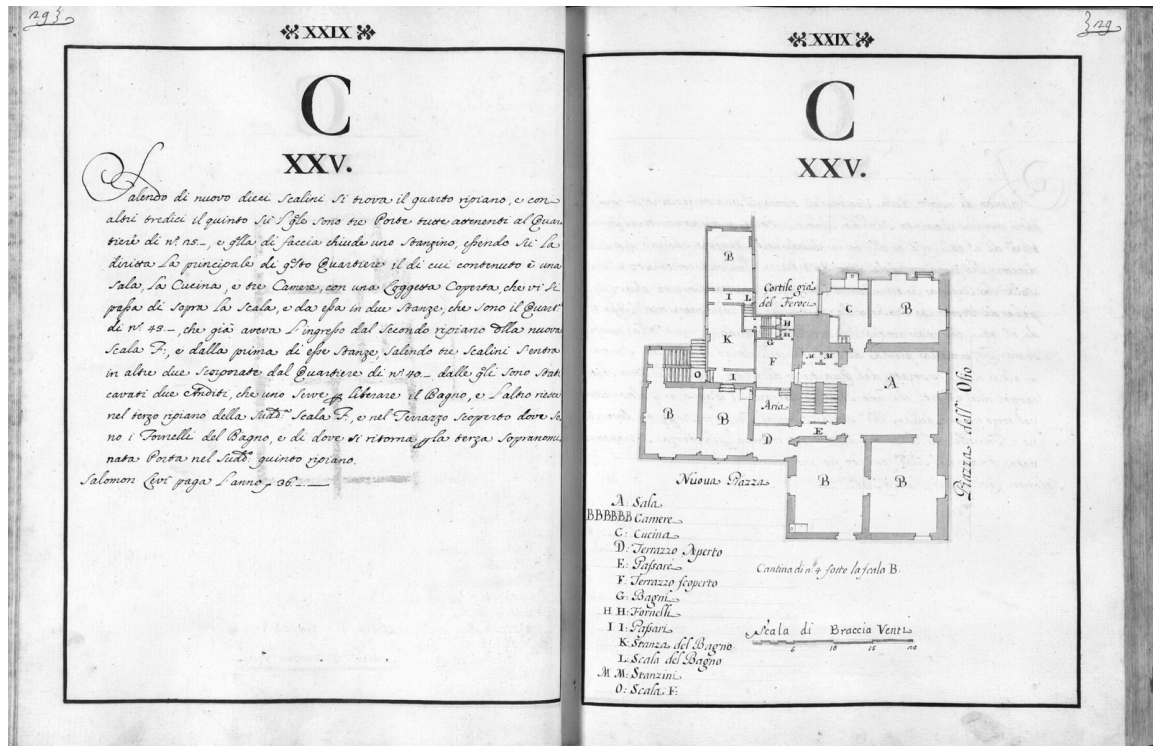 29
XXIX
C
XXV.
Salendo di nuovo dieci Scalini si trova il quarto ripiano, e con
altri tredici il quinto sù sono tre Porte tutte attenenti al Quar
tiere di nº. 25._, e q̃lla di faccia chiude uno Stanzino, essendo sù la
diritta La principale di q̃sto Quartiere il di cui contenuto è una
Sala, La Cucina, e tre Camere, con una Loggetta Coperta, che vi si
passa di sopra La Scala, e da essa in due Stanze, che sono il Quart:
di nº. 43._, che già aveva L'ingresso dal Secondo ripiano nuova
Scala F:, e dalla prima di esse Stanze, Salendo tre Scalini s'entra
in altre due Scorporate dal Quartiere di nº. 40._ dalle sono Stati
cavati due Anditi, che uno serve liberare il Bagno, e L'altro riesce
nel terzo ripiano della Scala F., e nel Terrazzo Scoperto dove so
no i Fornelli del Bagno, e di dove si ritorna la terza Sopranomi
nata Porta nel quinto ripiano.
Salomon Levi paga L'anno 36._
29
XXIX
C
XXV.
B
I L
Cortile già
del Feroci
C
B
K
G
H
H
F
M M
A
O
I
B
B
Aria
D
E
B
B
Nuova Piazza
Piazza dell' Olio
A: Sala
BBBBBB Camere
C: Cucina
D: Terrazzo Aperto
E: Passare
F: Terrazzo scoperto
G: Bagni
H H: Fornelli
I I: Passari
K: Stanza del Bagno
L: Scala del Bagno
M M: Stanzini
O: Scala F:
Cantina di nº. 4 sotto la scala B.
Scala di Braccia Venti
6 10 15 20